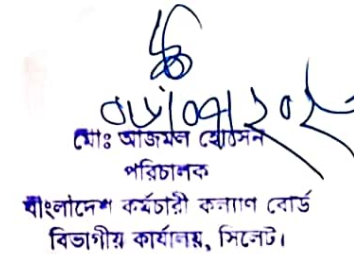 ০৮/০৭/২০২
মোঃ আজমল হোসেন
পরিচালক
বাংলাদেশ কর্মচারী কল্যাণ বোর্ড
বিভাগীয় কার্যালয়, সিলেট।